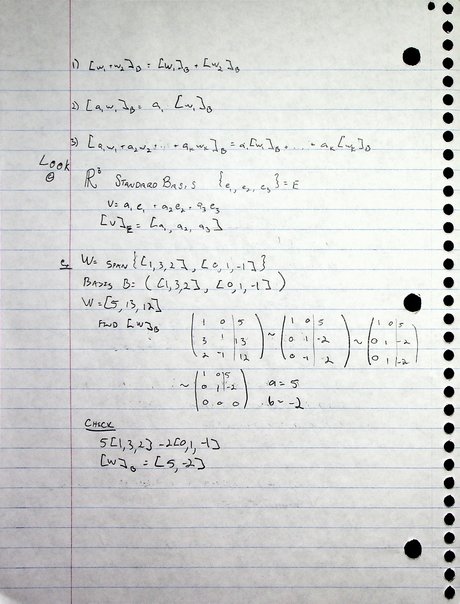 1) [w₁+w₂]_B = [w₁]_B + [w₂]_B
2) [a₁w₁]_B = a₁ [w₁]_B
3) [a₁w₁+a₂w₂+...+aₖwₖ]_B = a₁[w₁]_B+...+aₖ[wₖ]_B
LOOK @
ℝ³ STANDARD BASIS {e₁, e₂, e₃} = E
v = a₁e₁ + a₂e₂ + a₃e₃
[v]_E = [a₁, a₂, a₃]
W = SPAN {[1,3,2], [0,1,-1]}
BASIS B = ([1,3,2], [0,1,-1])
W = [5, 13, 12]
FIND [W]_B
( 1 0 | 5 ) ~ ( 1 0 | 5 ) ~ ( 1 0 | 5 )
( 3 1 | 13 ) ( 0 1 | -2 ) ( 0 1 | -2 )
( 2 -1 | 12 ) ( 0 -1 | 2 ) ( 0 1 | -2 )
~ ( 1 0 | 5 ) a = 5
( 0 1 | -2 ) b = -2
( 0 0 | 0 )
CHECK
5[1,3,2] -2[0,1,-1]
[W]_B = [5,-2]